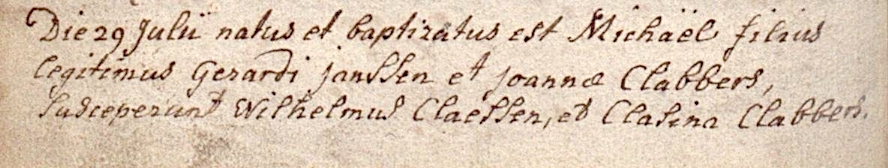 Die 29 Julii natus et baptizatus est Michaël filius
legitimus Gerardi Janssen et Joannæ Clabbers,
Susceperunt Wilhelmus Claessen, et Clasina Clabbers.